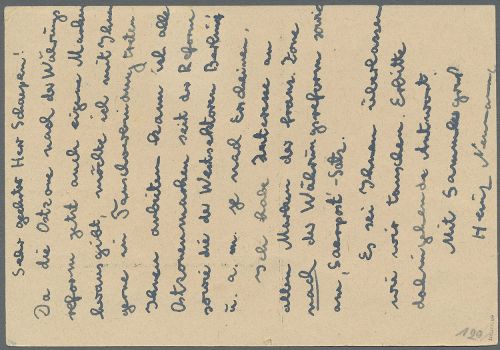 Sehr geehrter Herr Scharpen!
Da die Ostzone nach der Währungs
reform jetzt auch eigene Marken
herausgibt, möchte ich mit Ihnen
gerne in Tauschverbindung treten
Ihnen anbieten kann ich alle
Ostzonenmarken seit der Reform
sowie die der Westsektoren Berlins
u. a. m. je nach Erscheinen.
Ich habe Interesse an
allen Marken der franz. Zone
nach der Währungsreform sowie
am „Saarpost"-Satz.
Es sei Ihnen überlassen
wie wir tauschen. Erbitte
dahingehende Antwort.
Mit Sammlergruß
Heinz
120